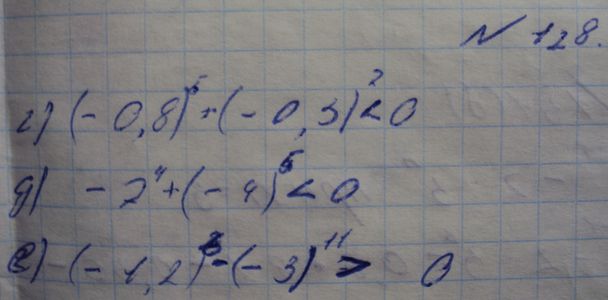 N 128.
г) (-0,8)⁵ - (-0,3)² < 0
д) -2⁴ + (-4)⁵ < 0
е) -(-1,2) - (-3)¹¹ > 0